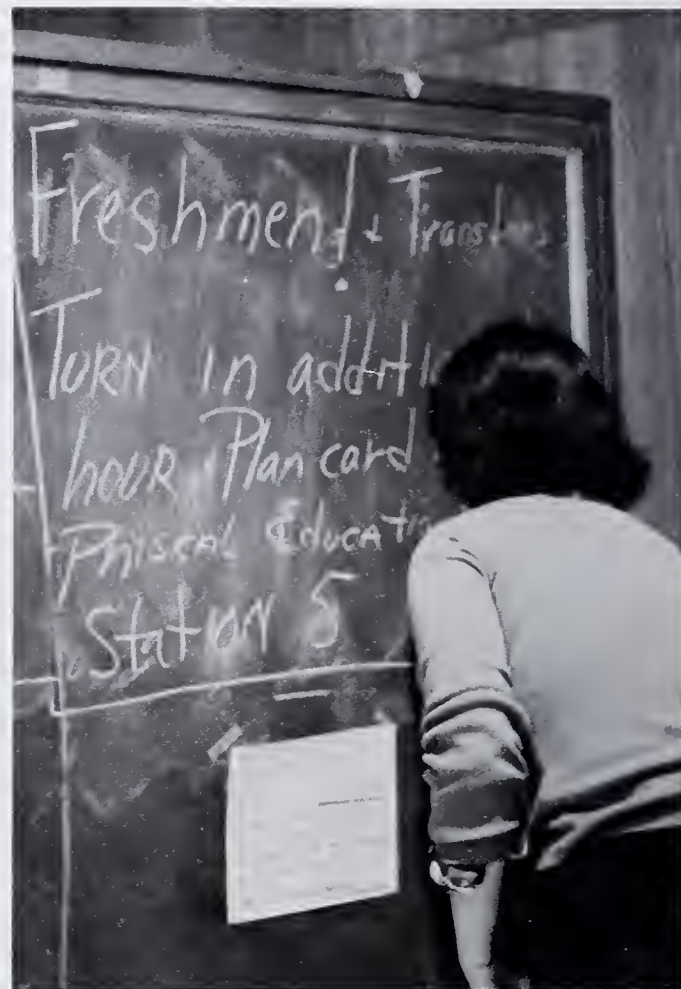 Freshmen! + Transfers
TURN in additi
hour Plan card
Phiscal Educatio
Station 5